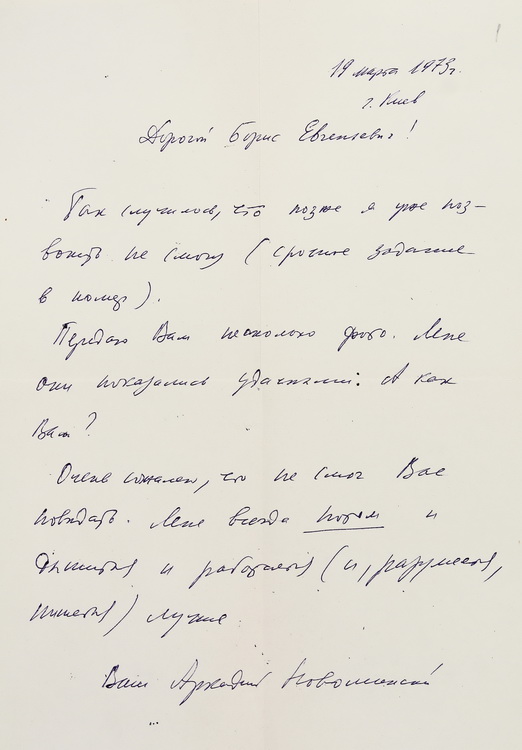 19 марта 1973г.
г. Киев
Дорогой Борис Евгеньевич!
Так случилось, что позже я уже поз-
вонить не смогу (срочное задание
в номер).
Передаю Вам несколько фото. Мне
они показались удачными. А как
Вам?
Очень сожалею, что не смог Вас
повидать. Мне всегда потом и
дышится и работается (и, разумеется,
пишется) лучше.
Ваш Аркадий